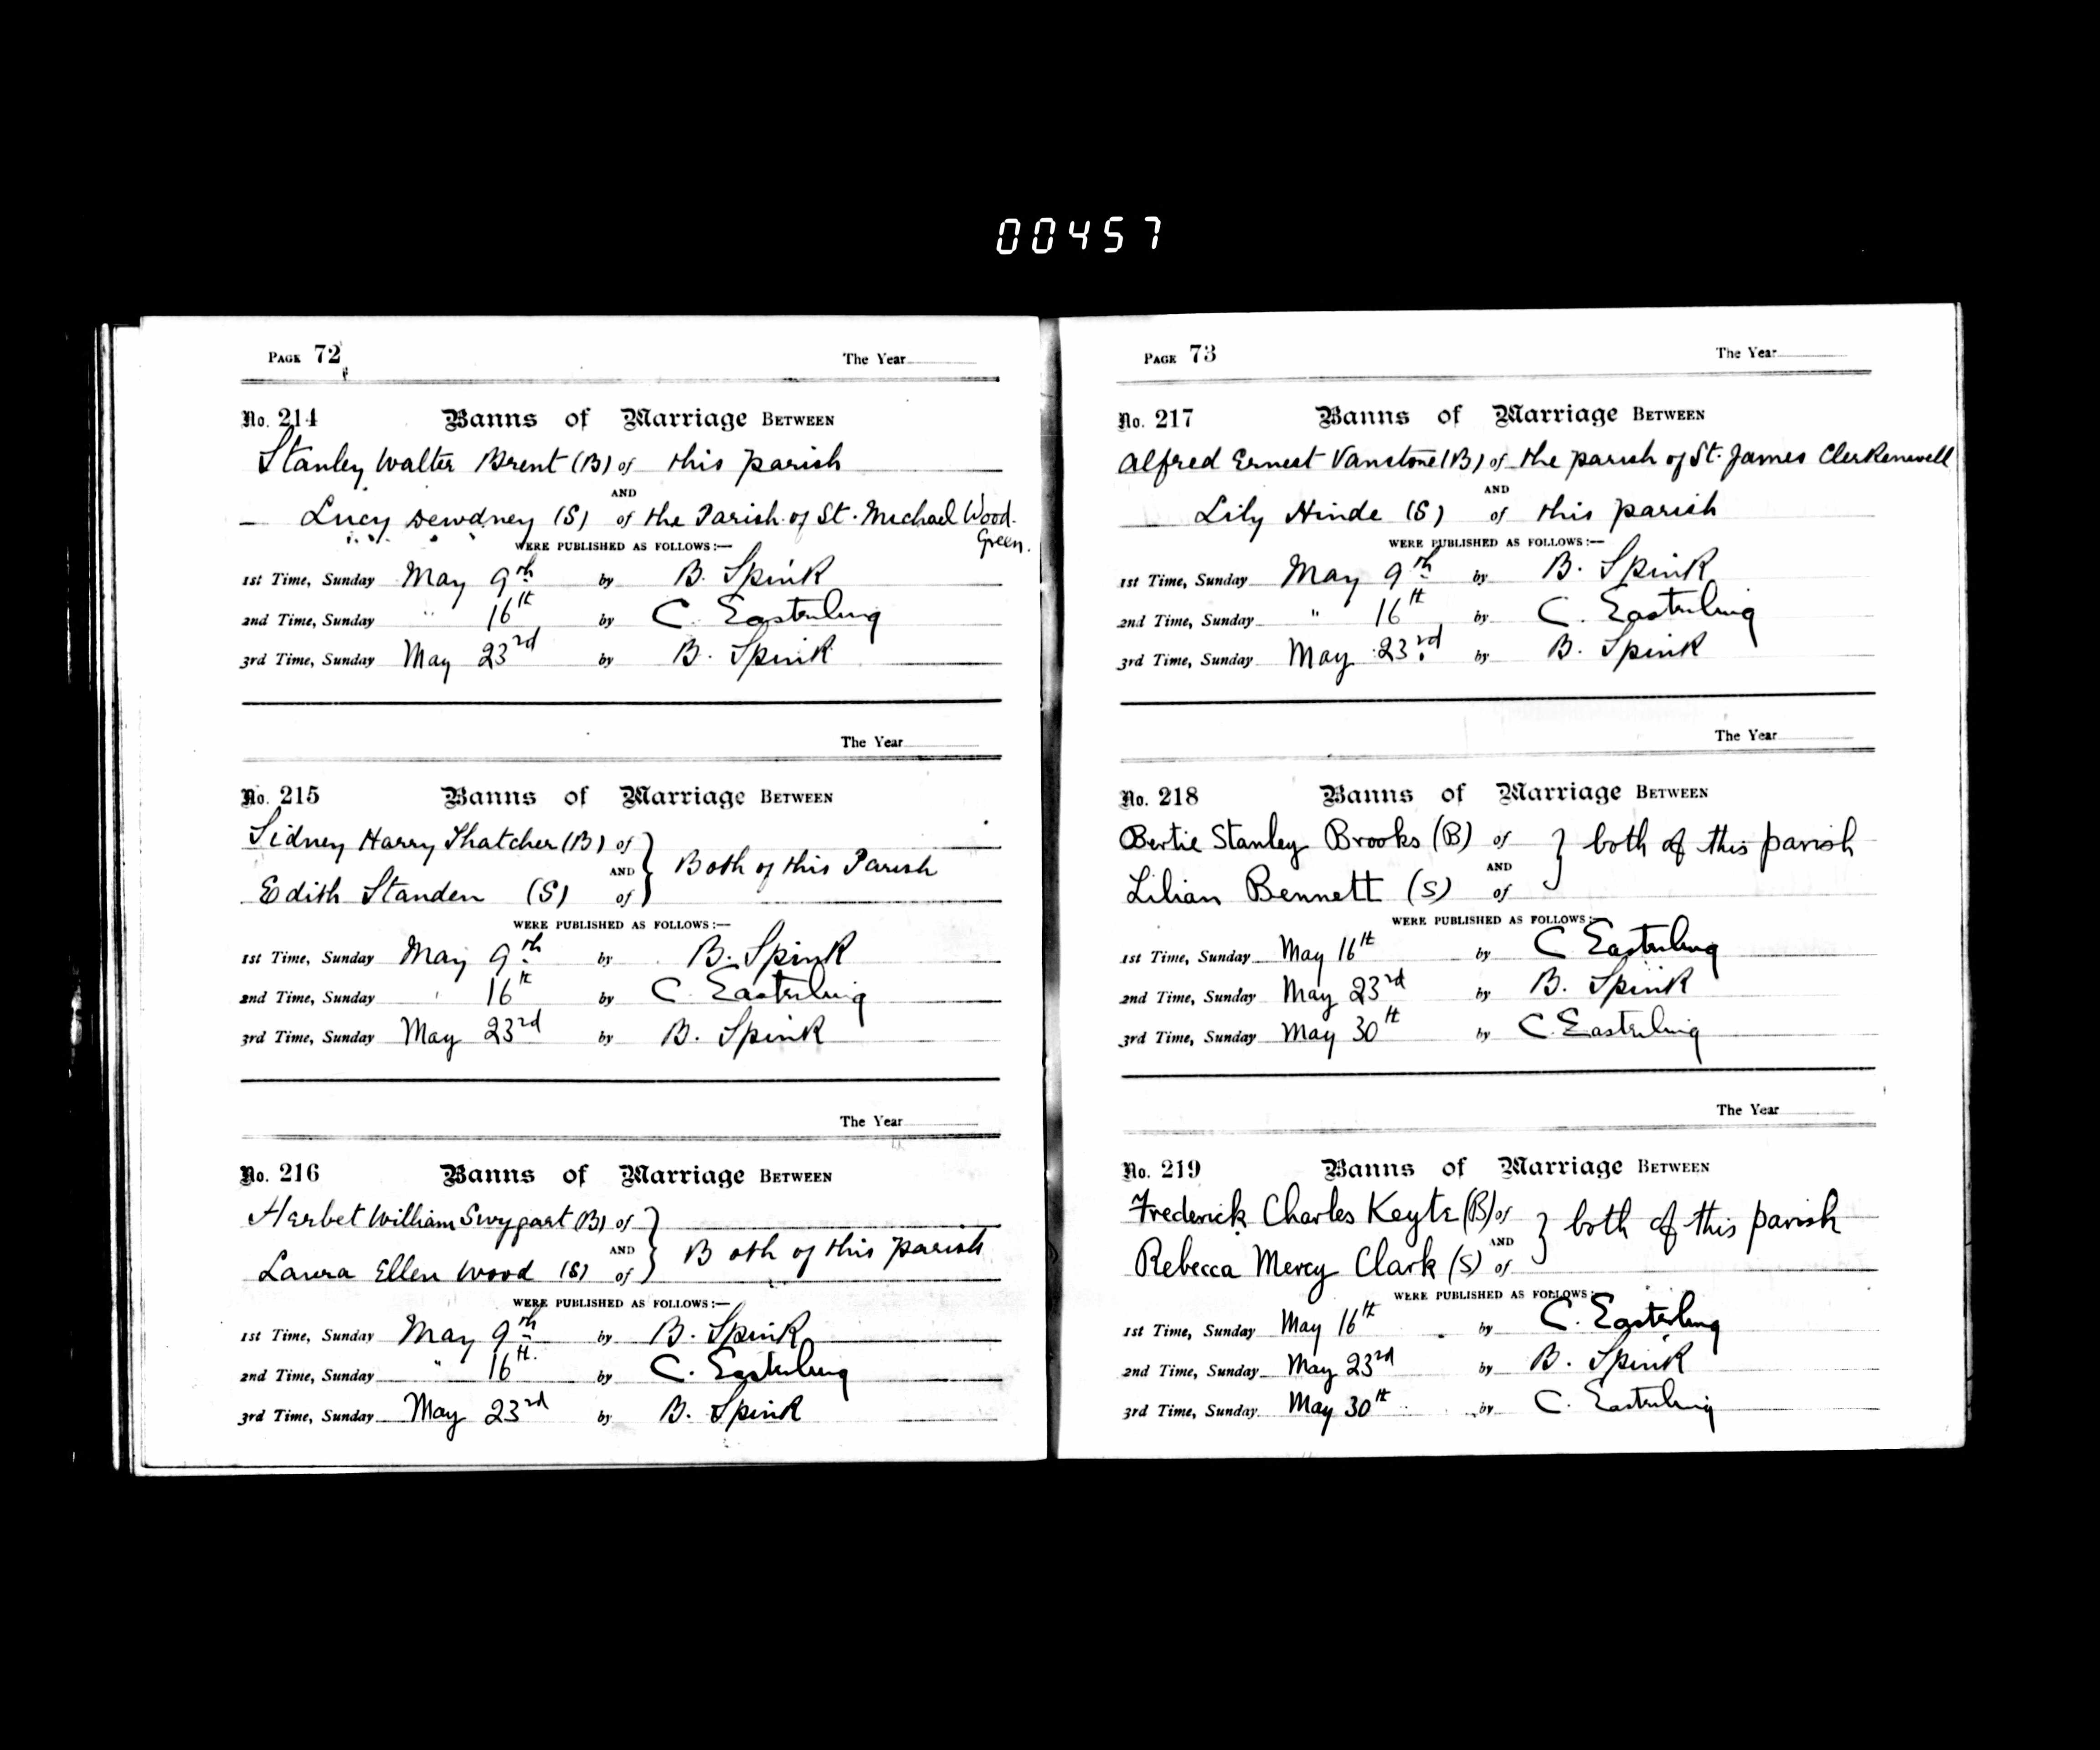 00457
PAGE 72
The Year
No. 214 Banns of Marriage BETWEEN
Stanley Walter Brent (B) of this parish
AND
Lucy Dewdney (S) of the Parish of St. Michael Wood
Green.
WERE PUBLISHED AS FOLLOWS:—
1st Time, Sunday May 9th by B. Spink
2nd Time, Sunday " 16th by C. Easterling
3rd Time, Sunday May 23rd by B. Spink
The Year
No. 215 Banns of Marriage BETWEEN
Sidney Harry Thatcher (B) of
AND } Both of this Parish
Edith Standen (S) of
WERE PUBLISHED AS FOLLOWS:—
1st Time, Sunday May 9th by B. Spink
2nd Time, Sunday " 16th by C. Easterling
3rd Time, Sunday May 23rd by B. Spink
The Year
No. 216 Banns of Marriage BETWEEN
Herbet William Swygart (B) of
AND } Both of this parish
Laura Ellen Wood (S) of
WERE PUBLISHED AS FOLLOWS:—
1st Time, Sunday May 9th by B. Spink
2nd Time, Sunday " 16th by C. Easterling
3rd Time, Sunday May 23rd by B. Spink
PAGE 73
The Year
No. 217 Banns of Marriage BETWEEN
Alfred Ernest Vanstone (B) of the parish of St. James Clerkenwell
AND
Lily Hinde (S) of this parish
WERE PUBLISHED AS FOLLOWS:—
1st Time, Sunday May 9th by B. Spink
2nd Time, Sunday " 16th by C. Easterling
3rd Time, Sunday May 23rd by B. Spink
The Year
No. 218 Banns of Marriage BETWEEN
Bertie Stanley Brooks (B) of } both of this parish
AND
Lilian Bennett (S) of
WERE PUBLISHED AS FOLLOWS:—
1st Time, Sunday May 16th by C Easterling
2nd Time, Sunday May 23rd by B. Spink
3rd Time, Sunday May 30th by C. Easterling
The Year
No. 219 Banns of Marriage BETWEEN
Frederick Charles Keyte (B) of } both of this parish
AND
Rebecca Mercy Clark (S) of
WERE PUBLISHED AS FOLLOWS:—
1st Time, Sunday May 16th by C. Easterling
2nd Time, Sunday May 23rd by B. Spink
3rd Time, Sunday May 30th by C. Easterling